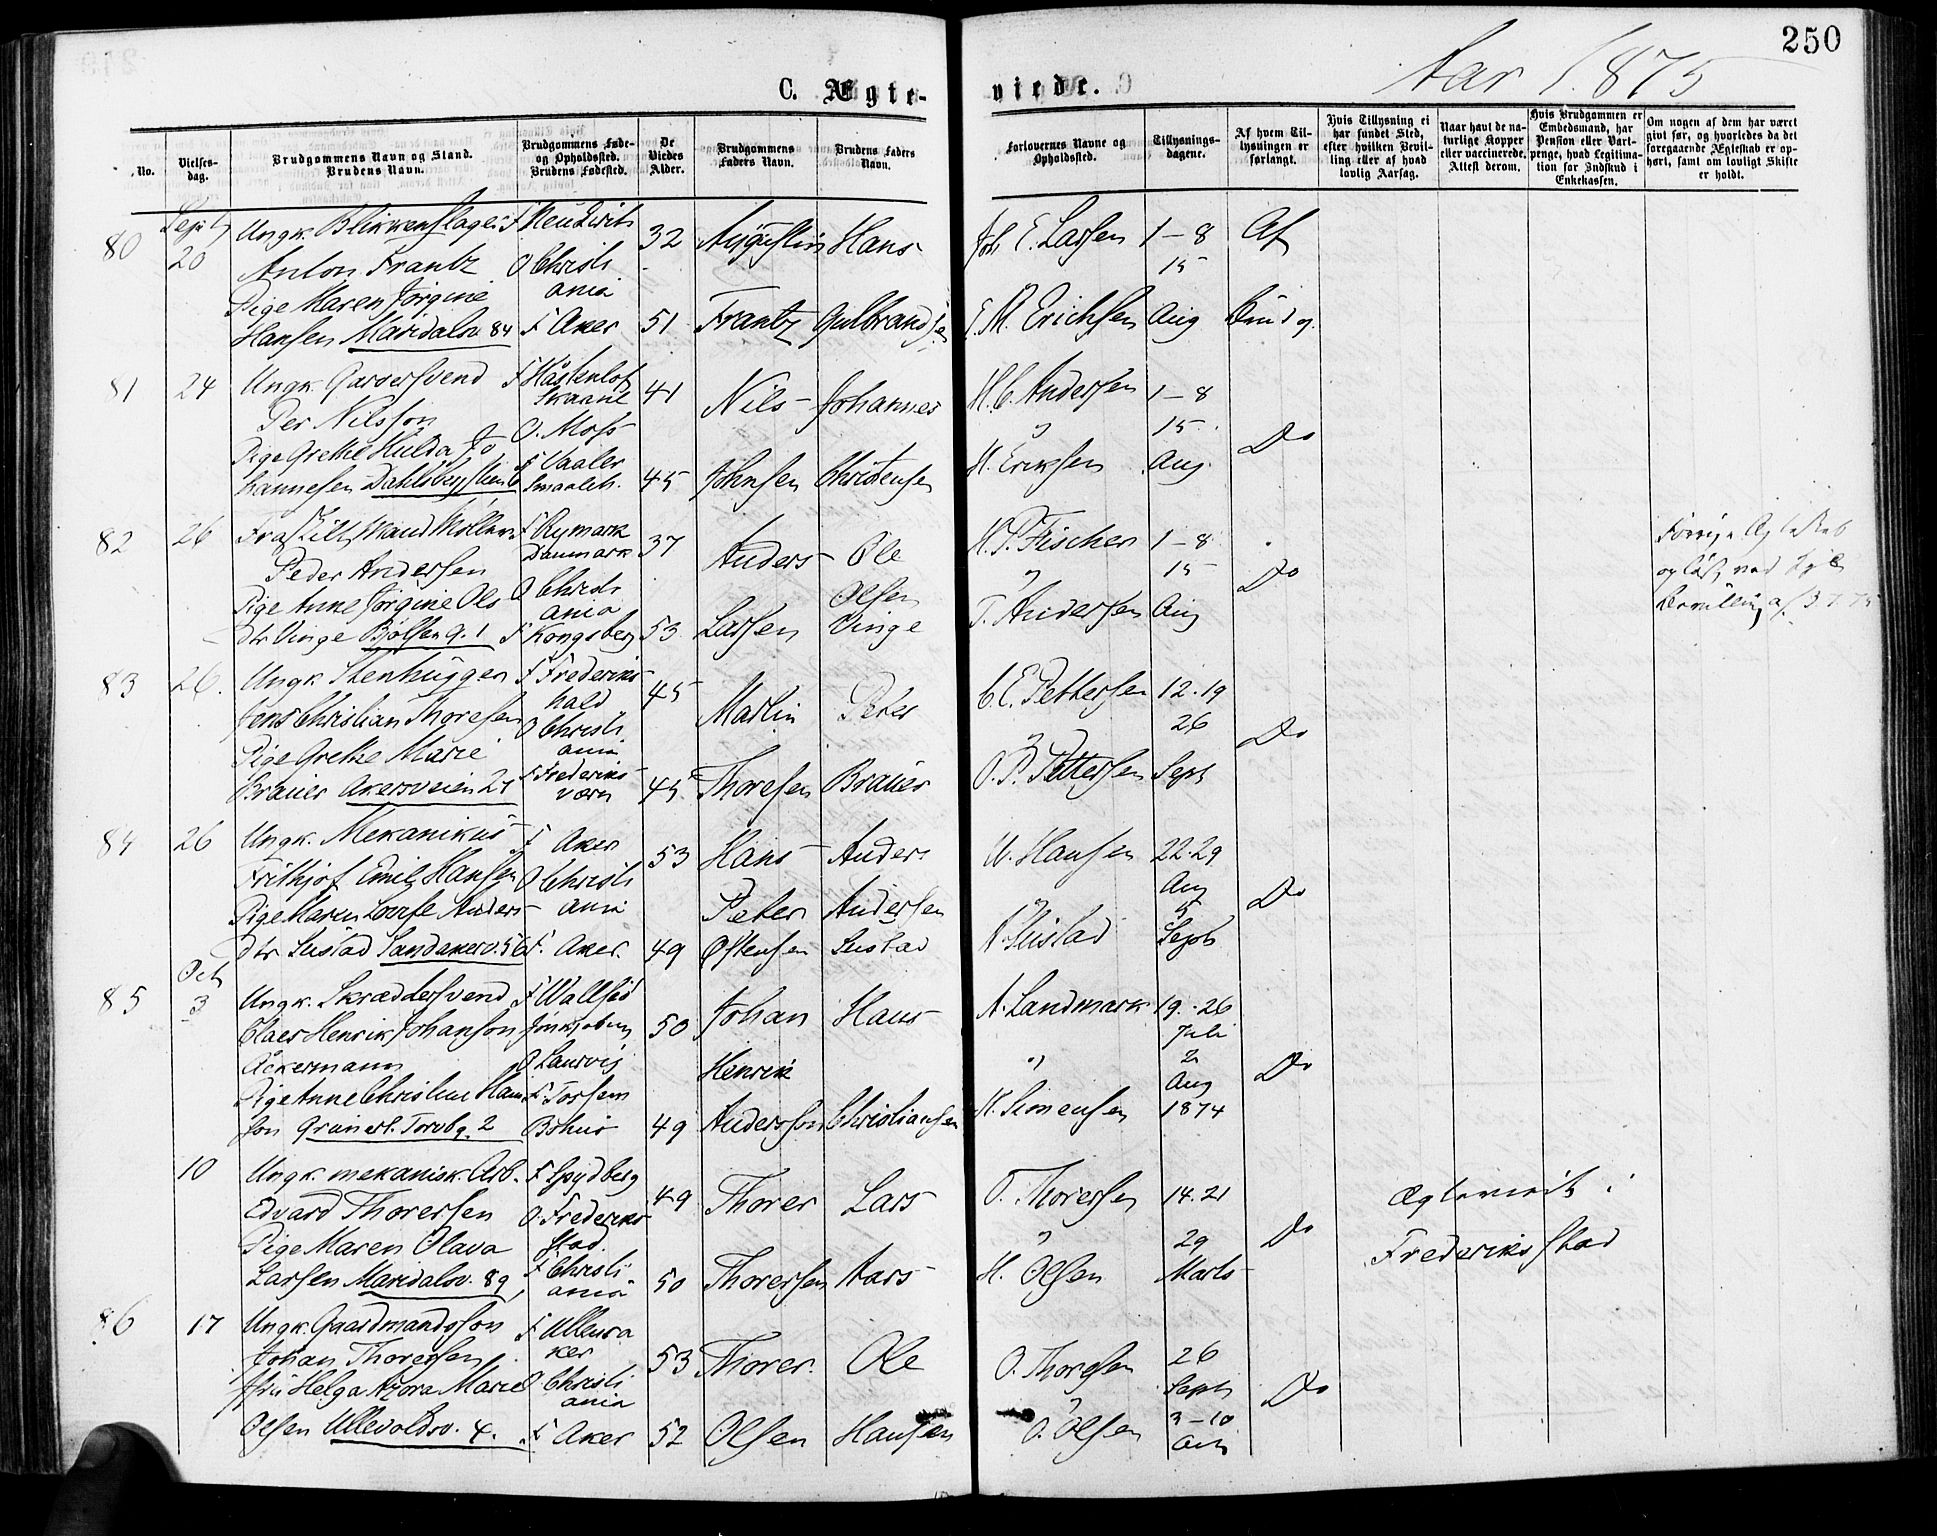 250
Aar 1875
C. Ægte-
viede.
No.
Vielses-
dag.
Brudgommens Navn og Stand.
Brudens Navn.
Brudgommens Føde-
og Opholdssted.
Brudens Fødested.
De
Viedes
Alder.
Brudgommens
Faders Navn.
Brudens Faders
Navn.
Forlovernes Navne og
Opholdssted.
Tillysnings-
dagene.
Af hvem Til-
lysningen er
forlangt.
Hvis Tillysning ei
har fundet Sted,
efter hvilken Bevil-
ling eller af hvad
lovlig Aarsag.
Naar havt de na-
turlige Kopper
eller vaccinerede.
Attest derom.
Hvis Brudgommen er
Embedsmand, har
Pension eller Vart-
penge, hvad Legitima-
tion for Indskud i
Enkekassen.
Om nogen af dem har været
givt før, og hvorledes da det
foregaaende Ægteskab er op-
hørt, samt om lovligt Skifte
er holdt.
80 Septb 20
Ungk. Blikkenslager
Anton Frantz
Pige Maren Jørgine
Hansen Maridalsv. 84
O Christi
ania
F Aker
32
51
Augustin
Frantz
Hans
Gulbrandsen
Joh. E. Larsen
E. M. Erichsen
1 – 8
15
Aug
Af
Brudg.
81 24
Ungk. Garversvend
Per Nilsson
Pige Grethe Hulda Jo
hannesen Dahlsbergstien 6
Skaane
O. Moss
F Vaaler
Smaaleh.
41
45
Nils
Johnsen
Johannes
Christensen
H. C. Andersen
"
H. Eriksen
1 – 8
15
Aug.
Do
82 26
Frask:lt Mand Møller
Peder Andersen
Pige Anne Jørgine Ols
dtr Vinge Bjølsen g. 1
F Rymark
Danmark
O Christi
ania
F Kongsberg
37
53
Anders
Larsen
Ole
Olsen
Vinge
H. P. Fischer
"
T. Andersen
1 – 8
15
Aug
Do
Forrige Ægteskab
opløst ved Kgl
Bevilling af 3.7.75
83 26.
Ungk Stenhugger
Jens Christian Thoresen
Pige Grethe Marie
Brauer Akersveien 27
F Frederiks
hald
O Christi
ania
F Frederiks-
værn
45
45
Martin
Thoresen
Peter
Brauer
C. E. Pettersen
"
O. P. Pettersen
12. 19
26
Sept
Do
84 26
Ungk. Mekanikus
Frithjof Emil Hansen
Pige Maren Lovise Anders-
dtr Seistad Sandakerv. 56
F Aker
O Christi
ania
F. Aker.
53
49
Hans
Peter
Ostensen
Anders
Andersen
Seistad
A. Hansen
"
A Seistad
22. 29
Aug
5
Septb
Do
85 Oct 3
Ungk. Skræddersvend
Claes Henrik Johanson
Åckermann
Pige Anne Christine Han
son Grünerl. Torvbg. 2
F Wallsjö
Jönkjobing
O Laurvig
F Torsem
Bohus
50
49
Johan
Henrik
Andersson
Hans
Christiansen
A. Landmark
"
H. Simensen
19. 26
Juli
2
Aug
1874
Do
10
Ungk. mekanisk. Arb.
Edvard Thorersen
Pige Maren Olava
Larsen Maridalsv. 89
F Spydberg
O. Frederiks
stad.
F Christi
ania
49
50
Thorer
Thorersen
Lars
Aars
O. Thorersen
"
H. Olsen
14. 21
29
Marts
Do
Ægteviet i
Frederiksstad
86 17
Ungk. Gaardmandsson
Johan Thorersen
Pige Helga Azora Marie
Olsen Ullevoldsv. 4.
F Ullensa
ker
O Christi
ania
F Aker
53
52
Thorer
Olsen
Ole
Hansen
O. Thoresen
"
O. Olsen
26
Septb
3 – 10
Oct
Do